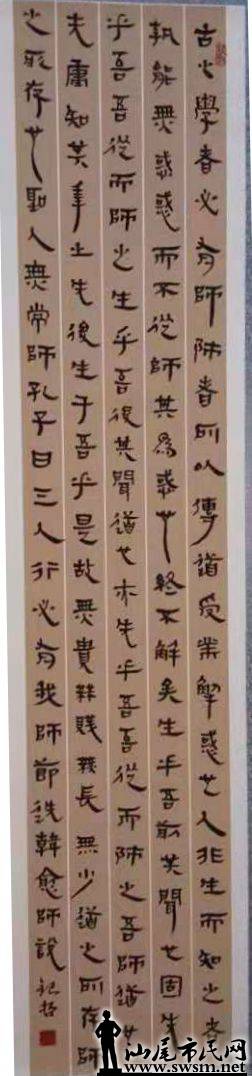 古之學者必有師師者所以傳道受業解惑也人非生而知之者
孰能無惑惑而不從師其為惑也終不解矣生乎吾前其聞也固先
乎吾吾從而師之生乎吾後其聞道也亦先乎吾吾從而師之吾師道也
夫庸知其年之先後生于吾乎是故無貴無賤無長無少道之所存師
之所存也聖人無常師孔子曰三人行必有我師節錄韓愈師說
汕尾市民网
www.swsm.net